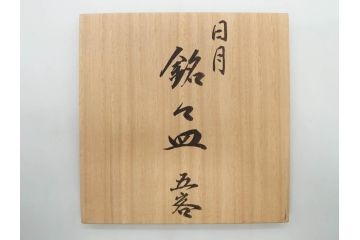 日月
銘々皿
五客